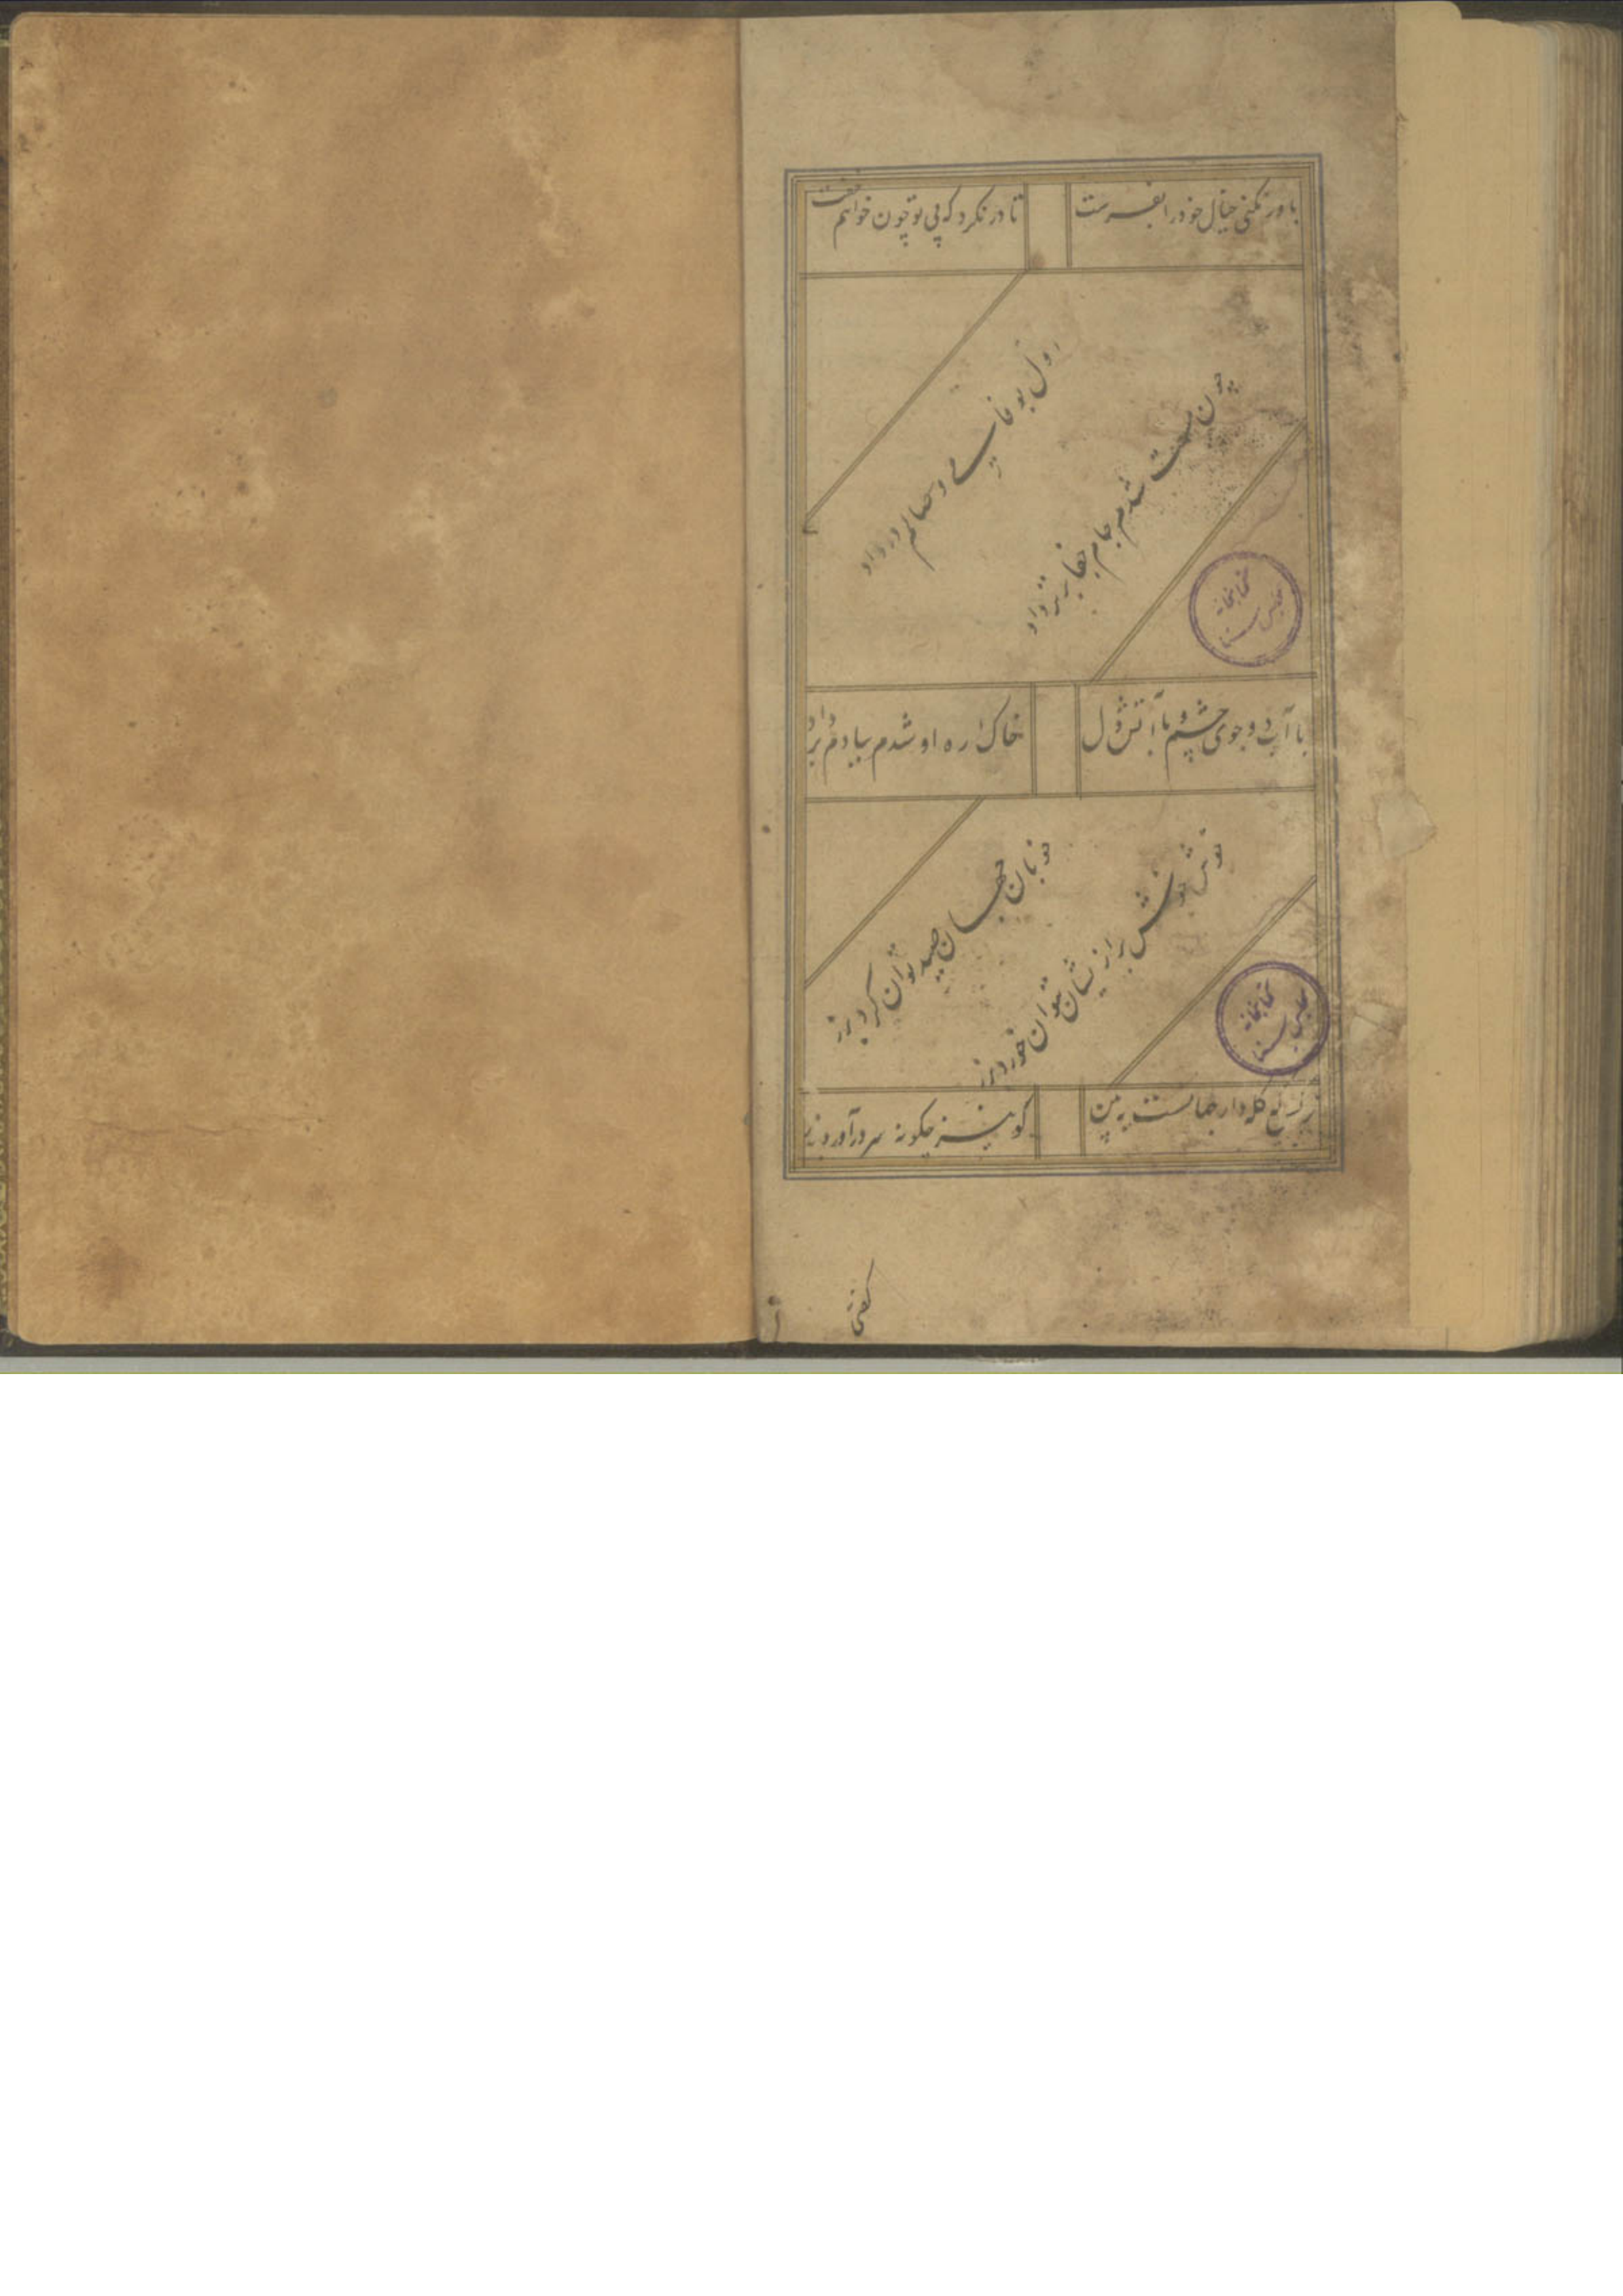 باور نکنی خیال خود را بفرست
تا در نگرد که بی تو چون خواهم خفت
اول بوفا می وصالم در داد
چون مست شدم جام جفا بر سر داد
با آب دو چوی چشم و با آتش دل
خاک ره او شدم ببادم بر داد
خوبان جهان صید توان کرد بزر
خوش خوش بر از یشان بتوان خورد بزر
نرگس که کله دار جهانست ببین
کو نیز چگونه سر در آورد بزر
کتابخانه مجلس سنا
کتابخانه مجلس سنا